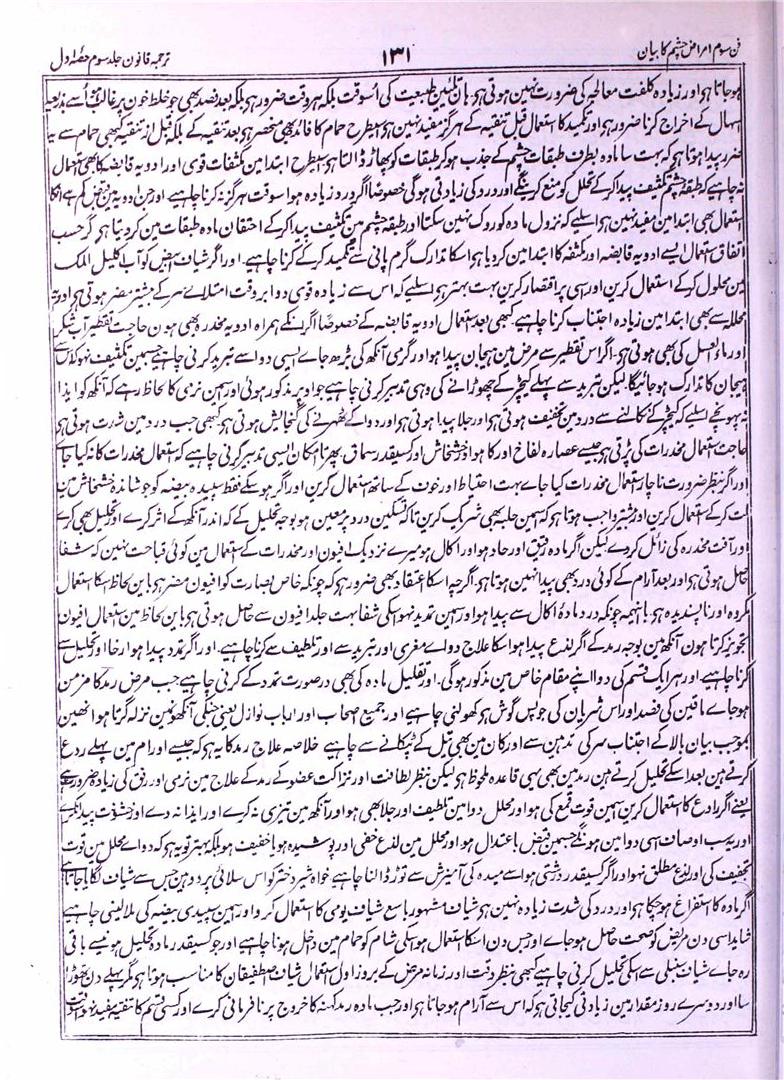 فن سوم امراض چشم کا بیان ۱۳۱ ترجمہ قانون جلد سوم حصہ اول
ہو جاتا ہو اور زیادہ کلفت معالجہ کی ضرورت نہین ہوتی ہو ہان تلئین طبیعت کی اُسوقت بلکہ ہر وقت ضرور ہو بلکہ بعد فصد بھی جو خلط خون پر غالب ہو اُسے بذریعہ
اسہال کے اخراج کرنا ضرور ہو اور تکمید کا استعمال قبل تنقیہ کے ہرگز مفید نہین ہو اسیطرح حمام کا فائدہ بھی منحصر ہو بعد تنقیہ کے بلکہ قبل از تنقیہ کبھی حمام سے یہ
ضرر پیدا ہوتا ہو کہ بہت سا مادہ بطرف طبقات چشم کے جذب ہو کر طبقات کو پھاڑ ڈالتا ہو اسیطرح ابتدا مین مکثفات قوی اور ادویہ قابضہ کا بھی استعمال
نہ چاہیے کہ طبقہ چشم تکثیف پیدا کر کے تحلل کو منع کرینگے اور درد کی زیادتی ہوگی خصوصاً اگر درد زیادہ ہو اسوقت ہرگز نہ کرنا چاہیے اور جن ادویہ مین قبض کم ہے انکا
استعمال بھی ابتدا مین مفید نہین ہو اسلیے کہ نزول مادہ کو روک نہین سکتا اور طبقہ چشم مین تکثیف پیدا کر کے احتقان مادہ طبقات مین کر دیتا ہو گر حسب
اتفاق استعمال ایسے ادویہ قابضہ اور مکثفہ کا ابتدا مین کر دیا ہو اسکا تدارک گرم پانی سے تکمید کر کے کرنا چاہیے۔ اور اگر شیاف ابیض کو آب اکلیل الملک
مین محلول کر کے استعمال کرین اور اسی پر اقتصار کرین بہت بہتر ہو اسلیے کہ اس سے زیادہ قوی دوا بر وقت امتلاے سر کے بیشتر مضر ہوتی ہو اور
محللہ سے بھی ابتدا مین زیادہ اجتناب کرنا چاہیے۔ کبھی بعد استعمال ادویہ قابضہ کے خصوصاً اگر انکے ہمراہ ادویہ مخدرہ بھی ہون حاجت تقطیر آب شکر
اور ماء العسل کی بھی ہوتی ہو۔ اگر اس تقطیر سے مرض مین ہیجان پیدا ہو اور گرمی آنکھ کی بڑھ جاے ایسی دوا سے تبرید کرنی چاہیے جسمین تکثیف نہو کہ اس سے
ہیجان کا تدارک ہو جائیگا لیکن تبرید سے پہلے کیچڑ کے چھوڑانے کی وہی تدبیر کرنی چاہیے جو اوپر مذکور ہوئی اور اسمین نرمی کا لحاظ رہے کہ آنکھ کو ایذا
نہ پہونچے اسلیے کہ کیچڑ کے نکالنے سے درد مین تخفیف ہوتی ہو اور جلا پیدا ہوتی ہو اور دوا کے ٹھہرنے کی گنجایش ہوتی ہو کبھی جب درد مین شدت ہوتی ہو
حاجت استعمال مخدرات کی پڑتی ہو جیسے عصارہ لفاح اور کاہو اور خشخاش اور کسیقدر سماق۔ پھر تا امکان ایسی تدبیر کرنی چاہیے کہ استعمال مخدرات کا نہ کیا جاے
اور اگر بنظر ضرورت ناچار استعمال مخدرات کیا جاے بہت احتیاط اور خوف کے ساتھ استعمال کرین اور اگر ہو سکے فقط سپیدہ بیضہ کو جوشاندہ خشخاش مین
لت کر کے استعمال کرین اور بیشتر واجب ہوتا ہو کہ اسمین حلبہ بھی شریک کرین تاکہ تسکین درد پر معین ہو بوجہ تحلیل کے کہ اندر آنکھ کے اثر کرے اور تحلیل بھی کرے
اور آفت مخدرہ کی زائل کر دے لیکن اگر مادہ رقیق اور حاد ہو اور اکال ہو میرے نزدیک افیون اور مخدرات کے استعمال مین کوئی قباحت نہین کہ شفا
حاصل ہوتی ہو اور بعد آرام کے کوئی درد بھی پیدا نہین ہوتا ہو اگرچہ اسکا اعتقاد بھی ضرور ہو کہ چونکہ خاص بصارت کو افیون مضر ہو باین لحاظ اسکا استعمال
مکروہ اور ناپسندیدہ ہو باینہمہ چونکہ درد مادۂ اکال سے پیدا ہو اور اسمین تمدید نہو اسکی شفا بہت جلد افیون سے حاصل ہوتی ہو باین لحاظ مین استعمال افیون
تجویز کرتا ہون آنکھ مین بوجہ رمد کے اگر لذع پیدا ہو اسکا علاج دواے مغری اور تبرید سے اور تلطیف سے کرنا چاہیے۔ اور اگر تمدد پیدا ہو ارخا اور تحلیل سے
کرنا چاہیے اور ہر ایک قسم کی دوا اپنے مقام خاص مین مذکور ہوگی۔ اور تقلیل مادہ کی بھی در صورت تمدد کے کرنی چاہیے جب مرض رمد کا مزمن
ہو جاے ماقین کی فصد اور اس شریان کی جو پس گوش ہو کھولنی چاہیے اور جمیع اصحاب رمد اور ارباب نوازل یعنی جنکی آنکھونمین نزلہ گرتا ہو انھین
بموجب بیان بالا کے اجتناب سر کی تدہین سے اور کان مین بھی تیل کے ٹپکانے سے چاہیے خلاصہ علاج رمد کا یہ ہو کہ جیسے اورام مین پہلے ردع
کرتے ہین بعد اسکے تحلیل کرتے ہین رمد مین بھی یہی قاعدہ ملحوظ ہو لیکن بنظر لطافت اور نزاکت عضو کے رمد کے علاج مین نرمی اور رفق کی زیادہ ضرورت ہے
یعنے اگر رادع کا استعمال کرین اسمین قوت قمع کی ہو اور محلل دوا مین تلطیف اور جلا بھی ہو اور آنکھ مین تیزی نہ کرے اور ایذا نہ دے اور خشونت پیدا نکرے
اور یہ سب اوصاف اسی دوا مین ہونگے جسمین قبض باعتدال ہو اور محلل مین لذع خفی اور پوشیدہ ہو یا خفیف ہو بلکہ بہتر تو یہ ہو کہ دواے محلل مین قوت
تجفیف کی اور لذع مطلق نہو اور اگر کسیقدر درشتی ہو اسے سپیدہ کی آمیزش سے توڑ ڈالنا چاہیے خواہ شیر دختر کو اس سلائی پر دوہین جس سے شیاف لگایا جاتا ہے
اگر مادہ کا استفراغ ہو چکا ہو اور درد کی شدت زیادہ نہین ہو شیاف مشہور باسم شیاف یومی کا استعمال کر و اور اسمین سپیدی بیضہ کی ملا لینی چاہیے
شاید اسی دن مریض کو صحت حاصل ہو جاے اور جس دن اسکا استعمال ہو اسکی شام کو حمام مین داخل ہونا چاہیے اور جو کسیقدر مادہ تحلیل ہونیسے باقی
رہ جاے شیاف سنبلی سے اسکی تحلیل کرنی چاہیے کبھی بنظر وقت اور زمانہ مرض کے بروز اول استعمال شیاف اصطفیقان کا مناسب ہوتا ہو مگر پہلے دن تھوڑا
سا اور دوسرے روز مقدار مین زیادتی کیجاتی ہو کہ اس سے آرام ہو جاتا ہو اور جب مادہ رمد کہنہ کا خروج پر نا فرمانی کرے اور کسی قسم کا تنقیہ مفید نہو اسوقت